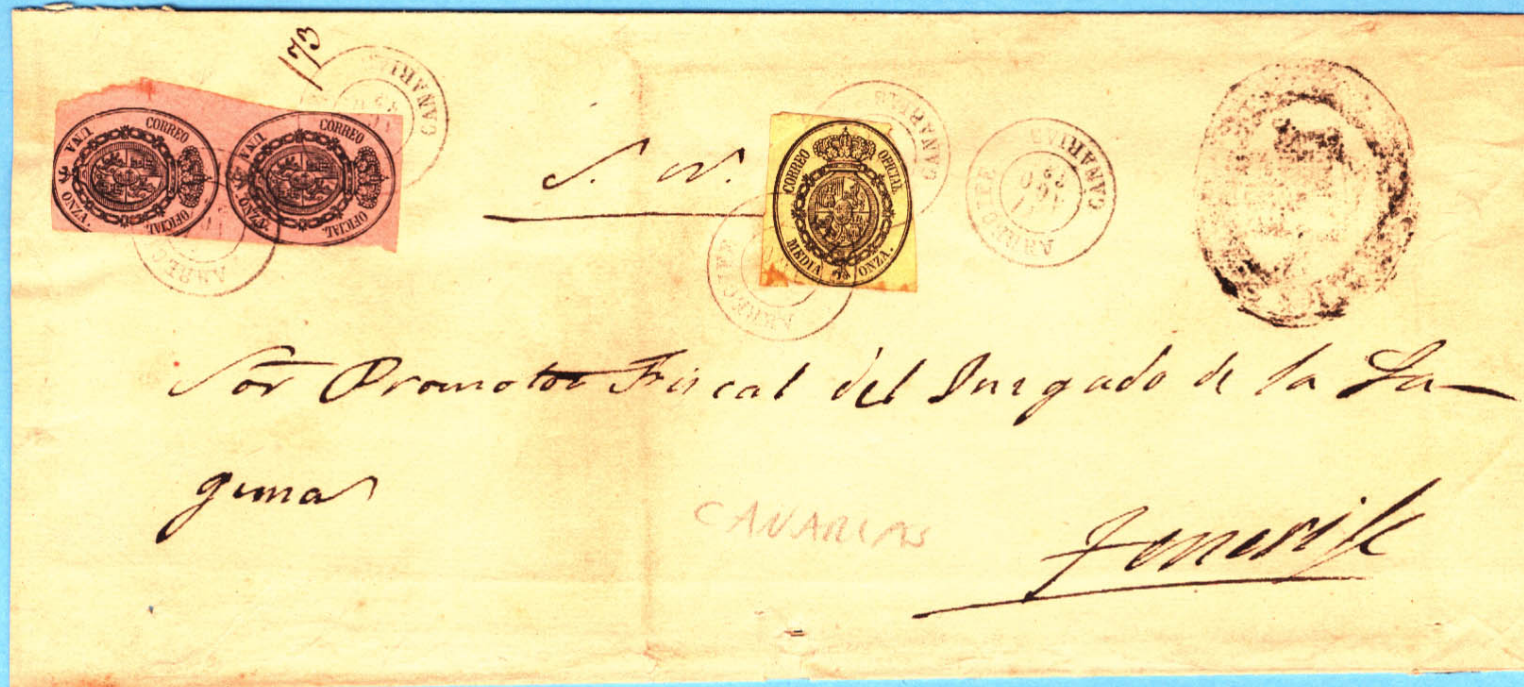 173
CORREO OFICIAL
UNA ONZA
CORREO OFICIAL
UNA ONZA
S. N.
CORREO OFICIAL
MEDIA ONZA.
ARRECIFE
CANARIAS
ARRECIFE
CANARIAS
ARRECIFE
CANARIAS
Sor Promotor Fiscal del Juzgado de la La-
guna
CANARIAS
Tenerife